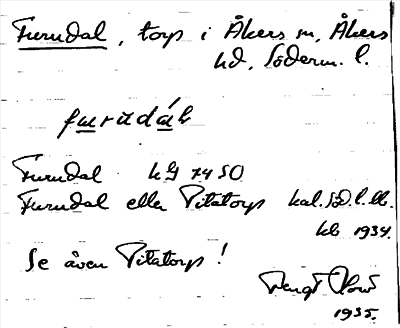 Furudal, torp i Åkers sn, Åkers
hd, Söderm. l.
furudáḷ
Furudal hS 7450
Furudal eller Pitatorp kal. Söd. l. bl.
kb 1934.
Se även Pitatorp!
Bengt
1935.